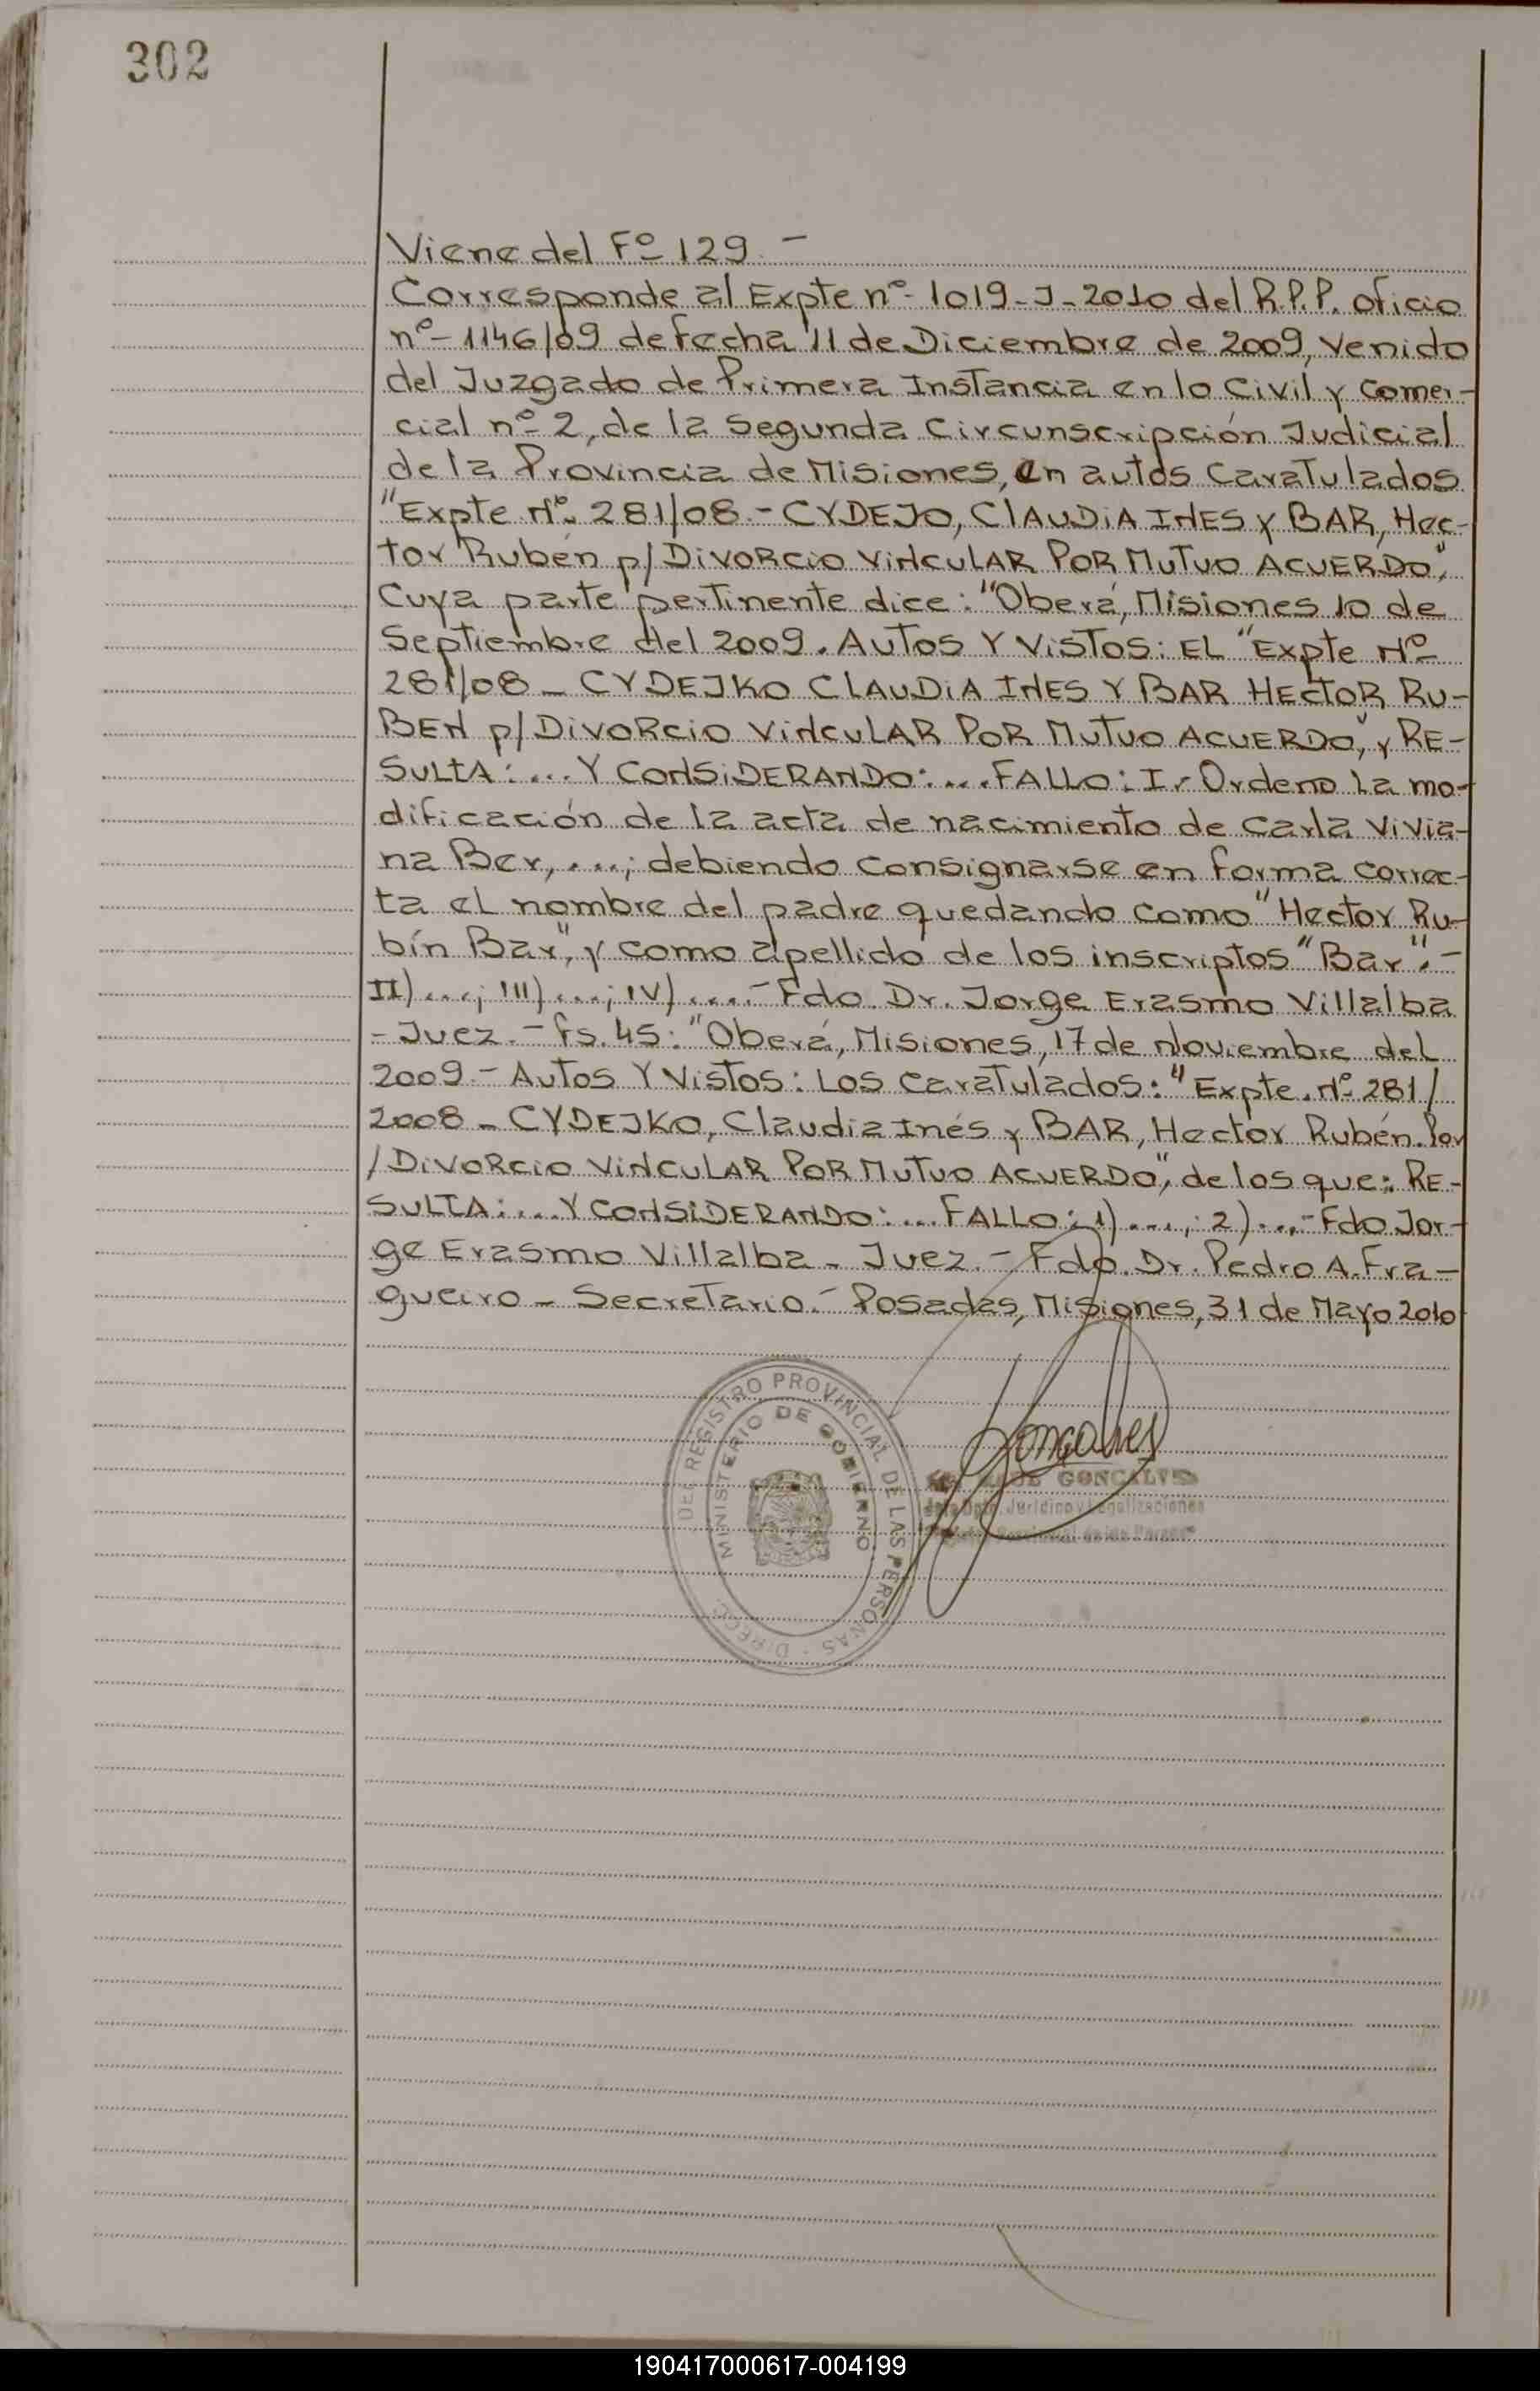 302
Viene del Fº 129.-
Corresponde al Expte nº- 1019-J-2010 del R.P.P. oficio
nº- 1146/09 de fecha 11 de Diciembre de 2009, venido
del Juzgado de Primera Instancia en lo Civil y Comer-
cial nº- 2, de la Segunda Circunscripción Judicial
de la Provincia de Misiones, en autos Caratulados
"Expte Nº. 281/08.- CYDEJO, CLAUDIA INES y BAR, Hec-
tor Rubén p/ DIVORCIO VINCULAR POR MUTUO ACUERDO",
Cuya parte pertinente dice: "Oberá, Misiones 10 de
Septiembre del 2009. AUTOS Y VISTOS: EL "Expte Nº-
281/08 - CYDEJKO CLAUDIA INES Y BAR HECTOR RU-
BEN p/ DIVORCIO VINCULAR POR MUTUO ACUERDO", y RE-
SULTA: .... Y CONSIDERANDO: .... FALLO: I.- Ordeno la mo-
dificación de la acta de nacimiento de Carla Vivia-
na Ber, ....; debiendo consignarse en forma correc-
ta el nombre del padre quedando como "Hector Ru-
bín Bar", y como apellido de los inscriptos "Bar".-
II) ....; III) ....; IV) ....- Fdo. Dr. Jorge Erasmo Villalba
- Juez.- fs. 45: "Oberá, Misiones, 17 de Noviembre del
2009.- AUTOS Y VISTOS: Los Caratulados: "Expte. Nº 281/
2008 - CYDEJKO, Claudia Inés y BAR, Hector Rubén. Por
/ DIVORCIO VINCULAR POR MUTUO ACUERDO", de los que: RE-
SULTA: .... Y CONSIDERANDO: .... FALLO: 1) ....; 2) ....- Fdo Jor-
ge Erasmo Villalba - Juez.- Fdo. Dr. Pedro A. Fra-
gueiro - Secretario.- Posadas, Misiones, 31 de Mayo 2010
DIRECC. DEL REGISTRO PROVINCIAL DE LAS PERSONAS -
MINISTERIO DE GOBIERNO
Gonçalves
GONCALVES
Jurídico y Legalizaciones
Provincial de las Personas
190417000617-004199